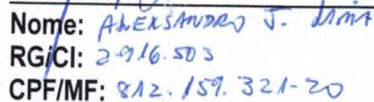 Nome: ALEXSANDRO J. LIMA
RG/CI: 2.916.503
CPF/MF: 812.159.321-20